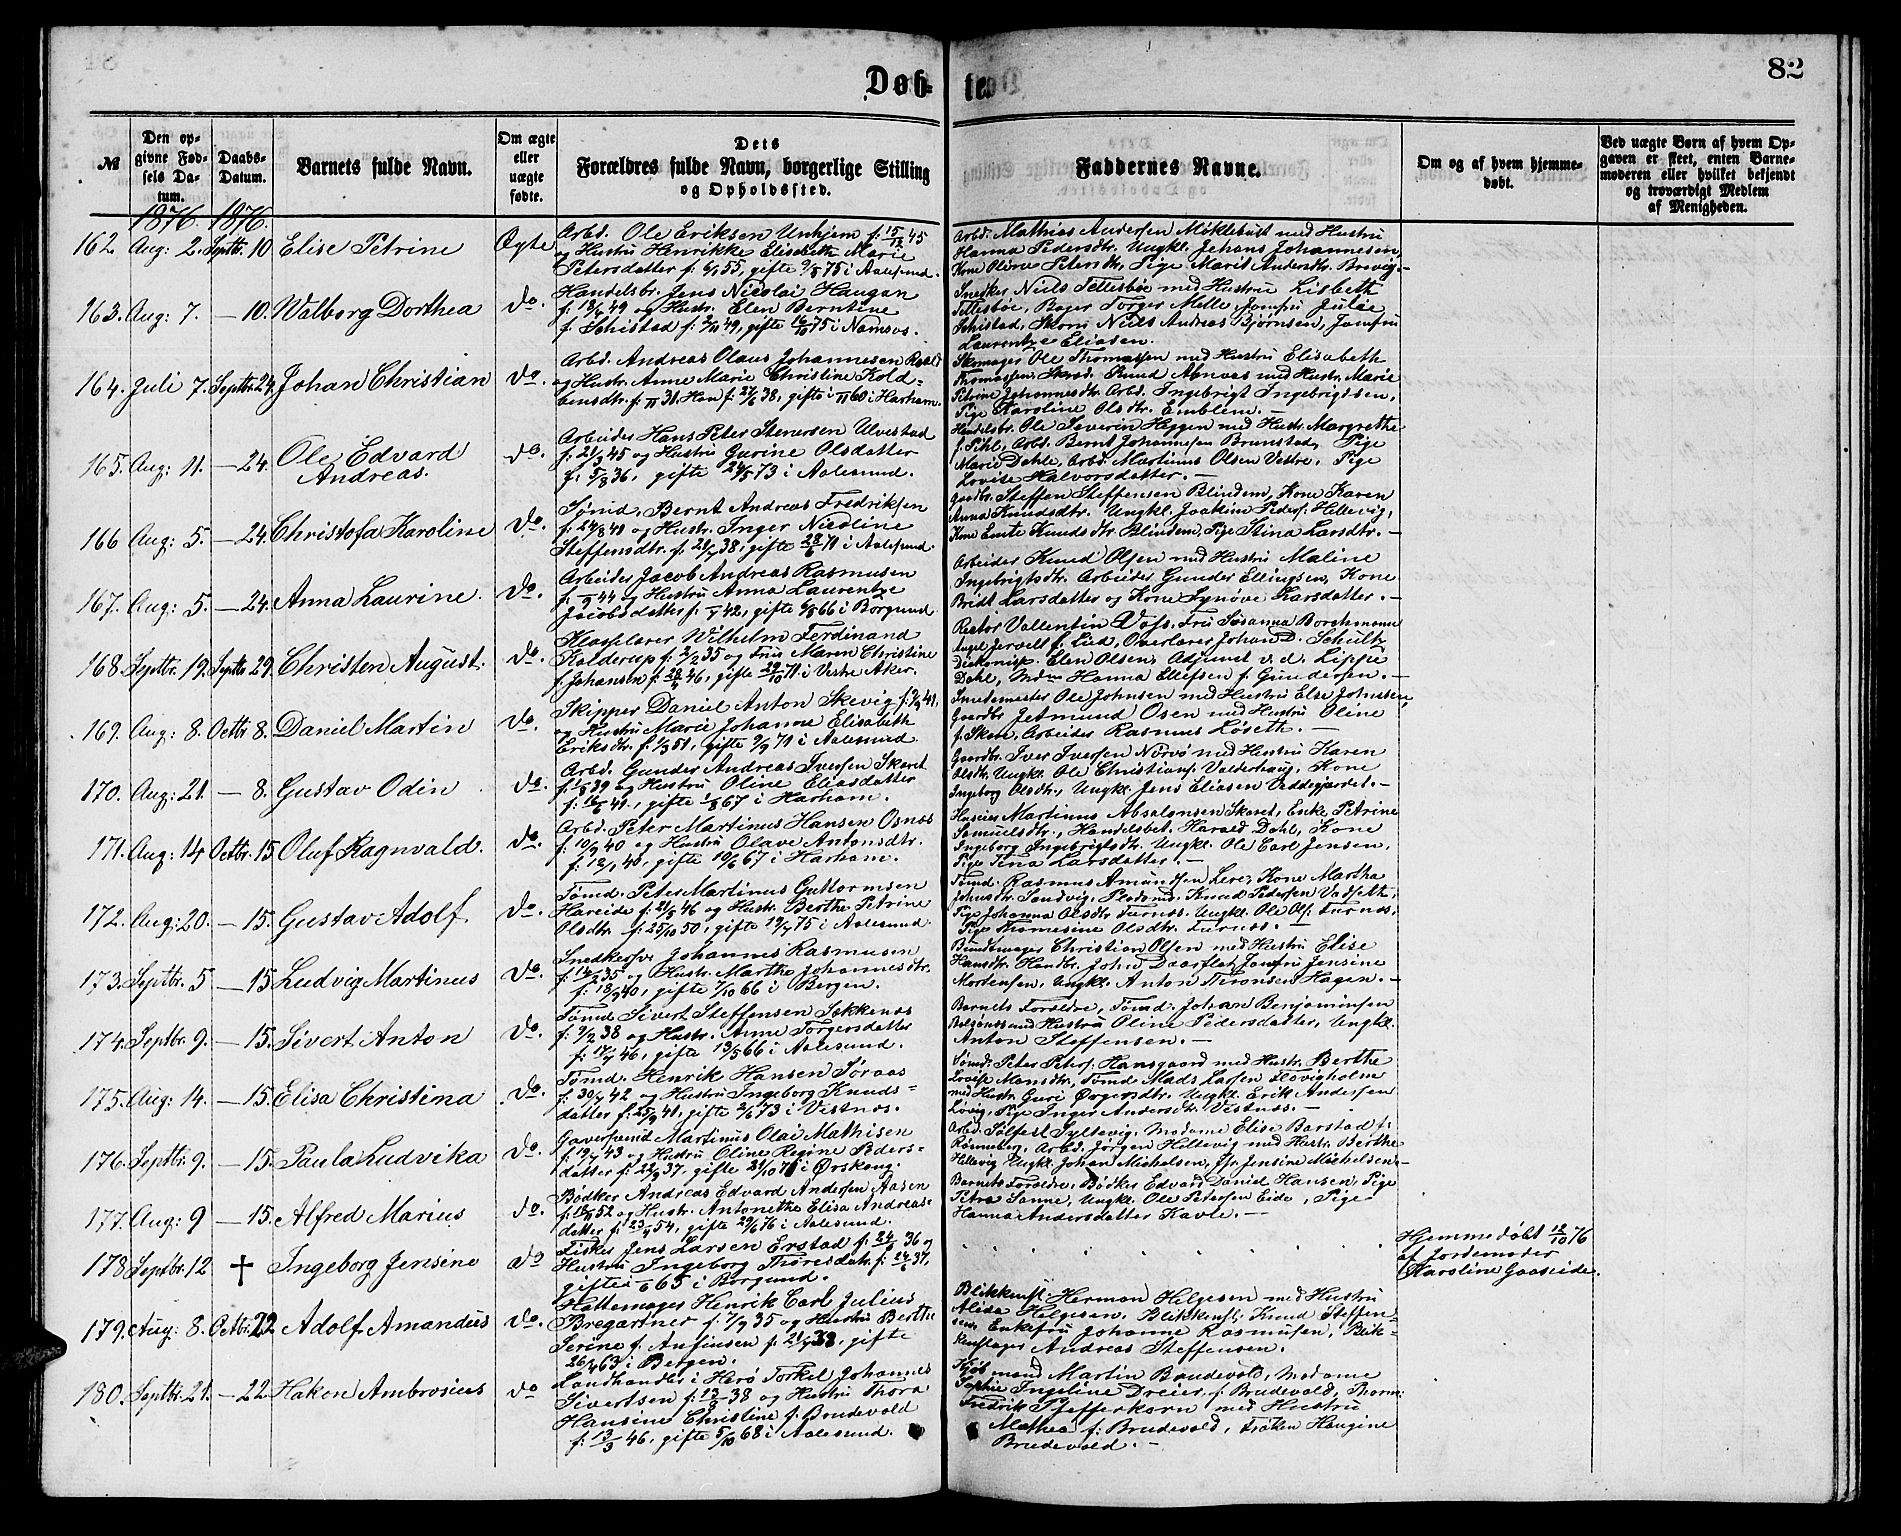 Døb-
te
82
№
Den op-
givne Fød-
sels Da-
tum.
Daabs-
Datum.
Barnets fulde Navn.
Om ægte
eller
uægte
fødte.
Dets
Forældres fulde Navn, borgerlige Stilling
og Opholdssted.
Faddernes Navne.
Om og af hvem hjemme-
døbt.
Ved uægte Børn af hvem Op-
gaven er skeet, enten Barne-
moderen eller hvilket bekjendt
og troværdigt Medlem
af Menigheden.
1876. 1876.
162 Aug: 2. Septbr. 10 Elise Petrine Ægte
Arbd. Ole Eriksen Unhjem f. 15/12 45
og Hustru Henrikke Elisabeth Marie
Petersdatter f: 6/1 55, gifte 9/8 75 i Aalesund.
Arbd. Mathias Andersen Möklebust med Hustru
Hanna Pedersdtr. Ungkl. Johans Johannesen,
Kone Oline Petersdtr, Pige Marit Andersdtr. Brevig.-
163. Aug: 7. — 10. Walborg Dorthea do.
Handelsbr. Jens Nicolai Haugan
f: 49 og Hustr. Elen Berntine
f. Schistad f: 2/10 49, gifte 16/10 75 i Namsos.
Snedker Niels Tettesbøe med Hustru Lisbeth
Tettesbøe, Bager Torger Melle Jomfru Julie
Schistad, Skom Niels Andreas Bjørnsen, Jomfru
Laurentze Eliasen.
164. Juli 7. Septbr. 24. Johan Christian do.
Arbd. Andreas Olaus Johannesen Roald
og Hustr. Anne Marie Christine Kold-
bensdtr. f: 31. Han f: 27/6 38, gifte i 60 i Harham.
Skomager Ole Thomassen med Hustru Elisabeth
Thomassen, Skrd. Knud Aknæs med Hustr. Marie
Petrine Johannesdtr. Arbd. Ingebrigt Ingebrigtsen,
Pige Karoline Olsdtr. Emblem.-
165. Aug: 11. — 24. Ole Edvard
Andreas. do.
Arbeider Hans Peter Stenersen Ulvestad
f: 21/2 45 og Hustru Gurine Olsdatter
f: 5/8 36, gifte 24/5 73 i Aalesund.
Handelsbr. Ole Severin Heggen med Hustr. Margrethe
f. Pihl, Arbd. Bernt Johannesen Brunstad, Pige
Marie Dahle, Arbd. Martinus Olsen Vestre, Pige
Lovise Halvorsdatter.-
166 Aug: 5. — 24. Christofa Karoline do.
Tømd. Bernt Andreas Fredriksen
f. 24/8 41 og Hustr. Inger Nicoline
Steffensdtr. f. 21/7 38, gifte 28/6 71 i Aalesund.
Gaardbr. Steffen Steffensen Blindem, Kone Karen
Anna Knudsdtr. Ungkl. Joakim Peders. Hellevig,
Kone Emte Knudsdtr Blindem, Pige Stina Larsdtr.-
167. Aug: 5. — 24. Anna Laurine. do.
Arbeider Jacob Andreas Rasmusen
f. 44 og Hustru Anna Laurentze
Jacobsdatter f: 42, gifte 6/8 66 i Borgund
Arbeider Knud Olsen med Hustru Maline
Ingebrigtsdtr. Arbeider Gunder Ellingsen, Kone
Bridt Larsdatter og Kone Synøve Larsdatter.-
168. Septbr. 19. Septbr. 29. Christen August. do.
Klasselærer Wilhelm Ferdinand
Kolderup f: 2/2 35 og Fru Maren Christine
f. Johansen f: 26/4 46, gifte 29/10 71 i Vestre Aker.
Rector Vallentin Vofs, Fru Susanna Borchmann
f. Lied, Overlærer Johan D. Schultz
Elen Olsen, Adjunct v.d. Lippe
Dahl, Mdm Hanna Ellefsen f. Gundersen.-
169. Aug: 8. Octbr 8. Daniel Martin do.
Skipper Daniel Anton Skevig f: 3/9 41,
og Hustru Marie Johanne Elisabeth
Eriksdtr. f: 1/3 51, gifte 9/9 71 i Aalesund.
Smedemester Ole Johnsen med Hustru Else Johnsen,
Gaardbr Jetmund Osen med Hustru Oline
f. Skare, Arbeider Rasmus Løseth.-
170. Aug: 21. — 8. Gustav Odin do.
Arbd. Gunder Andreas Iversen Skaret
f: 1/8 39 og Hustru Oline Eliasdatter
f: 16/6 41, gifte 67 i Harham.
Gaardbr. Iver Iversen Nørvø med Hustru Karen
Olsdtr. Ungkl. Ole Christians. Valderhaug, Kone
Ingeborg Olsdtr., Ungkl. Jens Eliasen Veddegjærdet.-
171. Aug: 14 Octbr. 15. Oluf Ragnvald. do.
Arbd. Peter Martinus Hansen Osnæs
f. 10/9 40 og Hustru Olave Antonsdtr.
f: 12/1 40, gifte 10/6 67 i Harham.
Martinus Absalonsen Skaret, Enke Petrine
Samuelsdtr., Handelsbet. Harald Dahl, Kone
Ingeborg Ingebrigtsdtr. Ungkl. Ole Carl Jensen,
Pige Tina Larsdatter.-
172. Aug: 20. — 15. Gustav Adolf do.
Tømd. Peter Martinus Guttormsen
Hareide f: 21/8 46 og Hustr. Berthe Petrine
Olsdtr. f: 25/10 50, gifte 19/7 75 i Aalesund
Tømd. Rasmus Amundsen Lere, Kone Martha
Johnsdtr. Sandvig, Knud Pedersen Vadseth,
Pige Johanna Olsdtr. Furnes. Ungkl. Ole Ols. Furnes,
Pige Thomesine Olsdtr. Furnes.-
173. Septbr. 5 — 15. Ludvig Martinus do.
Snedkersv. Johannes Rasmusen
f: 14/9 35 og Hustr. Marthe Johannesdtr.
f: 18/9 40, gifte 7/10 66 i Bergen.
Bundtmager Christian Olsen med Hustru Elise
Hansdtr. Handbr. John Daarflat, Jomfru Jensine
Mortensen, Ungkl. Anton Theronsen Hagen.-
174. Septbr. 9. — 15. Sivert Anton do.
Tømd Sivert Steffensen Søkkenæs
f: 9/2 38 og Hustr. Anne Torgersdatter
f: 17/7 46, gifte 13/5 66 i Aalesund.
Barnets Forældre, Tømd. Johan Benjaminsen
Bolsønæs med Hustru Oline Pedersdatter, Ungkl.
Anton Steffensen.-
175. Aug: 14. — 15. Elisa Christina do.
Tømd. Henrik Hansen Søraas
f: 30/7 42 og Hustru Ingeborg Knuds-
datter f. 25/9 41, gifte 2/6 73 i Vestnæs.
Tømd: Peter Peters. Hansgaard med Hustr. Berthe
Lovise Mansdtr, Tømd Mads Larsen Flovigholme
med Hustr Guri Ørgersdtr. Ungkl. Erik Andersen
Løvig, Pige Inger Andersdtr. Vestnæs.-
176. Septbr. 9. — 15. Paula Ludvika do.
Garversvend Martinus Olai Mathisen
f: 19/7 43 og Hustru Oline Regine Peders-
datter f: 22/9 37. gifte 21/10 71 i Ørskoug.
Arbd. Sølfest Syltevig, Madame Elise Barstad f.
Rønneberg, Arbd. Jørgen Hellevig med Hustr. Berthe
Hellevig Ungkl. Johan Michelsen, Jfr. Jensine Michelsen.-
177. Aug: 9 — 15. Alfred Marius do.
Bødker Andreas Edvard Andersen Aasen
f: 52 og Hustr. Antonethe Elisa Andreas-
datter f: 23/4 54, gifte 29/6 76 i Aalesund.
Barnets Forældre, Bødker Edvard Daniel Hansen, Pige
Petra Sanne, Ungkl. Ole Petersen Eide, Pige
Hanna Andersdatter Kavle.-
178 Septbr. 12 † Ingeborg Jensine do
Fisker Jens Larsen Erstad f: 24/ 36 og
Hustru Ingeborg Thoresdatr. f: 24/6 37,
gifte i 65 i Borgund.
Hjemmedøbt 12/10 76
af Jordemoder
Karoline Gaaseide.
179. Aug: 8. Octbr. 22 Adolf Amandus do.
Hattemager Henrik Carl Julius
Bregartner f: 7/9 35 og Hustru Berthe
Serine f. Anfinsen f: 21/7 38, gifte
26/4 63 i Bergen.
Blikkensl. Herman Helgesen med Hustru
Alida Helgesen, Blikkensl. Knud Steffen-
sen, Enkefru Johanne Rasmusen, Blik-
kenslager Andreas Steffensen.
180. Septbr. 21. — 22. Haken Ambrosius do
Landhandler i Herø Torkel Johannes
Sivertsen f: 12/8 38 og Hustru Thora
Hansine Christine f: Brudevold
f: 13/3 46, gifte 5/10 68 i Aalesund.
Kjøbmand Martin Brudevold, Madame
Sophie Ingeline Dreier f. Brudevold,
Fredrik Pfefferkorn med Hustru
Mathea f: Brudevold, Frøken Haugine
Brudevold.-